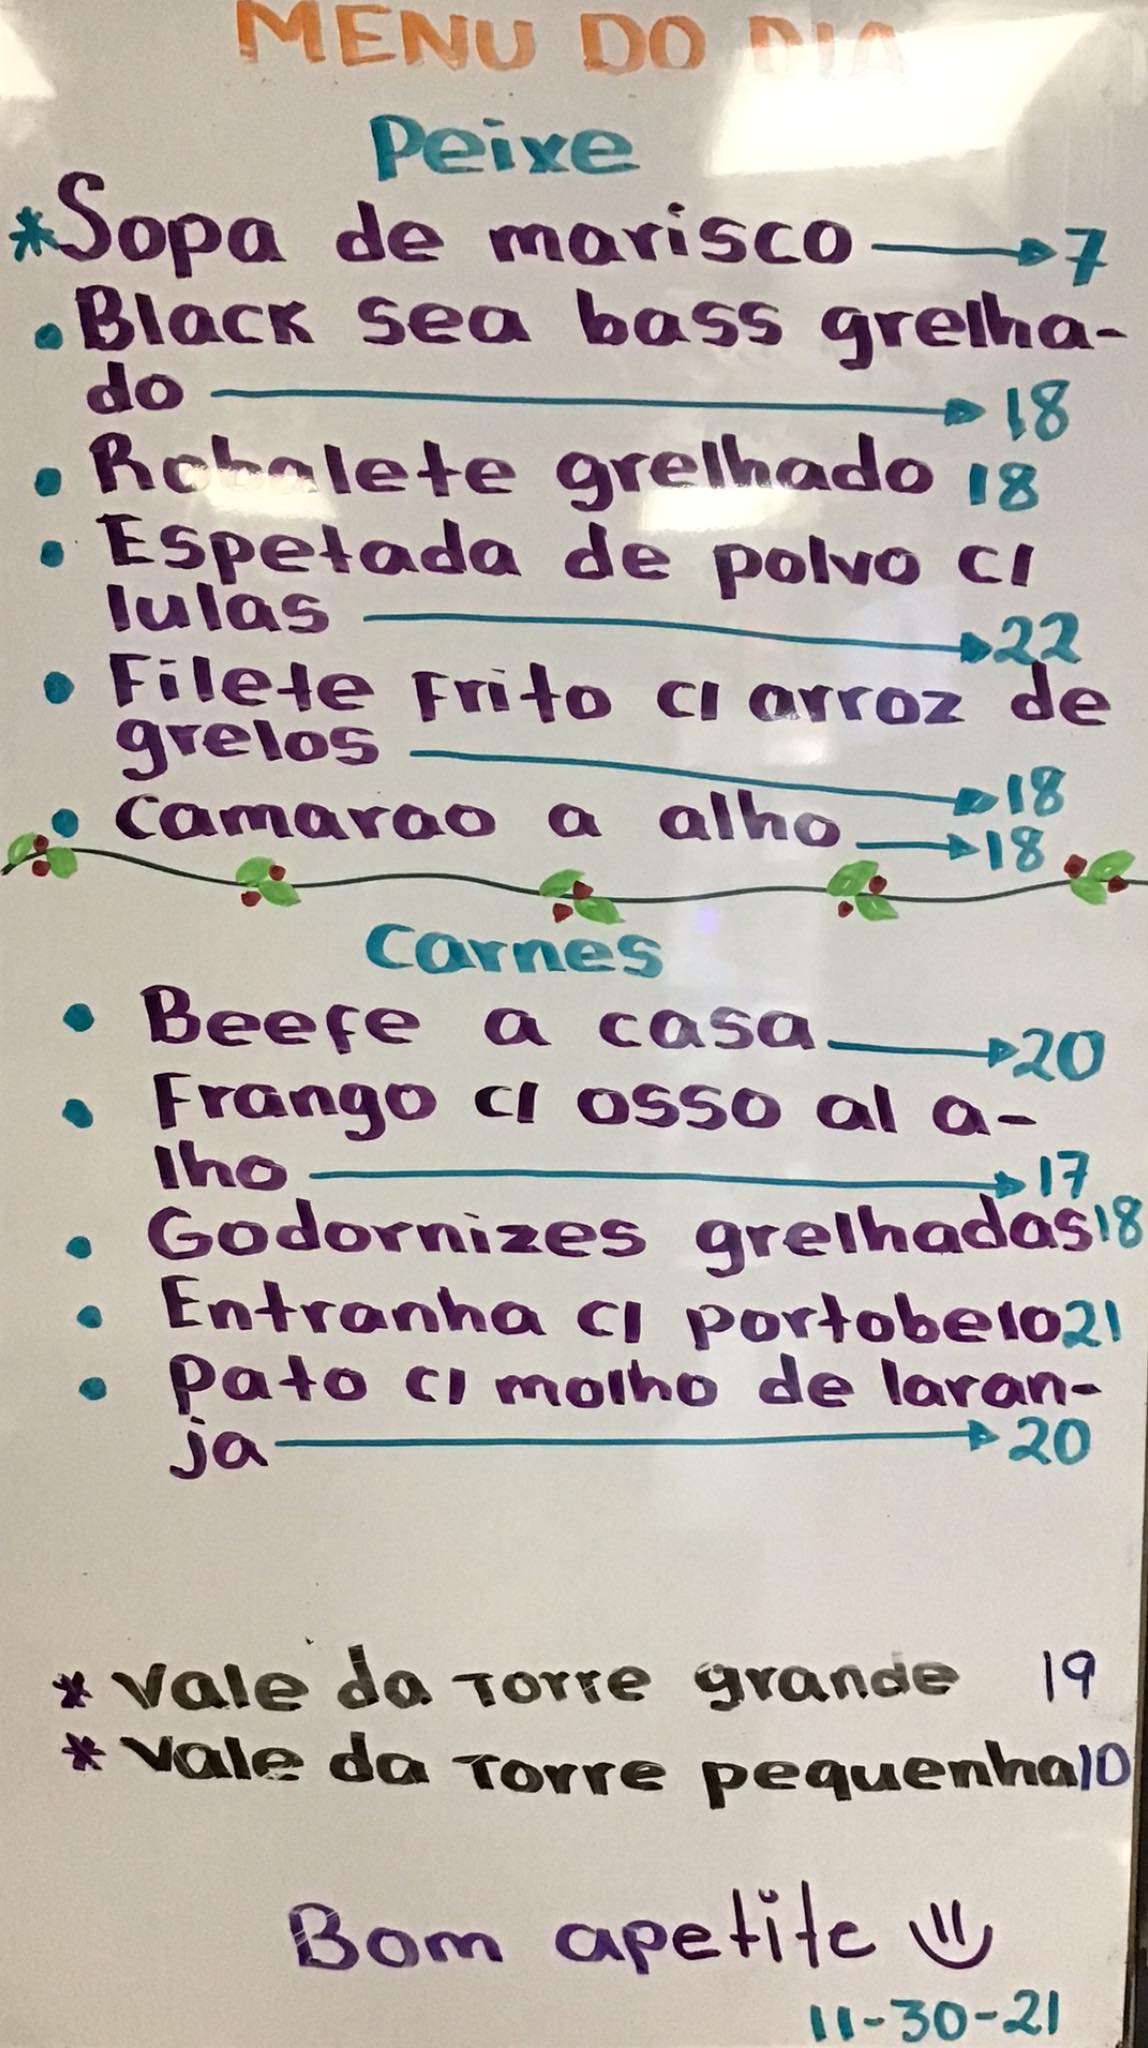 MENU DO DIA
Peixe
*Sopa de marisco 7
• Black sea bass grelha-
do 18
• Robalete grelhado 18
• Espetada de polvo c/
lulas 22
• Filete Frito c/ arroz de
grelos 18
• camarao a alho 18
Carnes
• Beefe a casa 20
• Frango c/ osso al a-
lho 17
• Godornizes grelhadas 18
• Entranha c/ portobelo 21
• Pato c/ molho de laran-
ja 20
* Vale da Torre grande 19
* Vale da Torre pequenha 10
Bom apetite
11-30-21